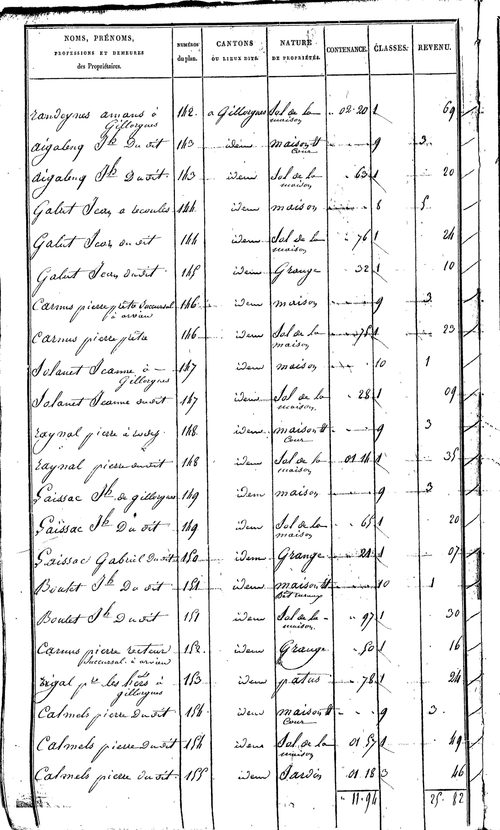 NOMS, PRÉNOMS, PROFESSIONS ET DEMEURES des Propriétaires. NUMÉROS du plan. CANTONS OU LIEUX DITS. NATURE DE PROPRIÉTÉS. CONTENANCE. CLASSES. REVENU.
randeynes amans à Gillorgues 142 a Gillorgues Sol de la maison 02 20 1 69
aigaleng Jh Du dit 143 idem maison et Cour 9 3
aigaleng Jh Du dit 143 idem Sol de la maison 63 1 20
Galut Jean a recoules 144 idem maison 8 5
Galut Jean du dit 144 idem Sol de la maison 76 1 24
Galut Jean du dit 145 idem Grange 32 1 10
Carnus pierre prêtre succursal à arvieu 146 idem maison 9 3
Carnus pierre prêtre 146 idem Sol de la maison 75 1 23
Solanet Jeanne à Gillorgues 147 idem maison 10 1
Solanet Jeanne du dit 147 idem Sol de la maison 28 1 09
raynal pierre à rodez 148 idem maison et Cour 9 3
raynal pierre du dit 148 idem Sol de la maison 01 14 1 35
Gaissac Jh de gillorgues 149 idem maison 9 3
Gaissac Jh Du dit 149 idem Sol de la maison 65 1 20
Gaissac Gabriel Du dit 150 idem Grange 21 1 07
Boutet Jh Du dit 151 idem maison et 10 1
Boutet Jh Du dit 151 idem Sol de la maison 97 1 30
Carnus pierre recteur succursal à arvieu 152 idem Grange 50 1 16
rigal pre les hoirs à gillorgues 153 idem patus 78 1 24
Calmels pierre Du dit 154 idem maison et Cour 9 3
Calmels pierre Du dit 154 idem Sol de la maison 01 57 1 49
Calmels pierre du dit 155 idem Jardin 01 18 3 46
11 94 25 82